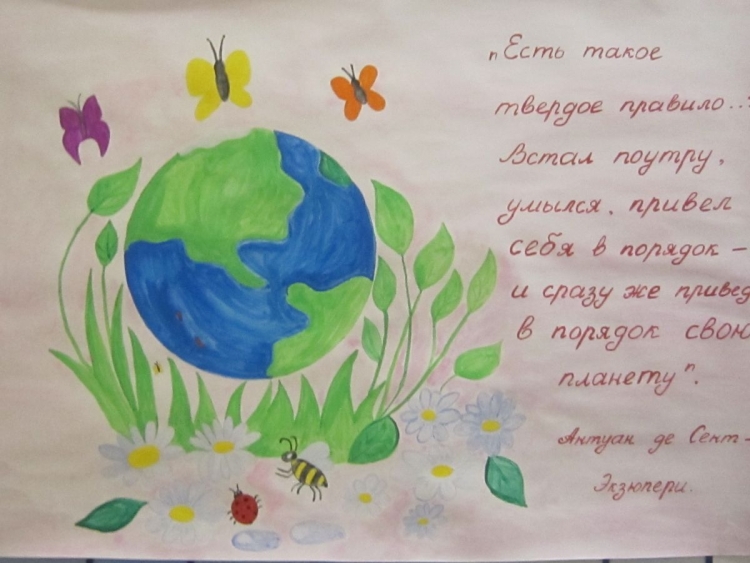 „Есть такое
твердое правило...:
Встал поутру,
умылся, привел
себя в порядок –
и сразу же привед
в порядок свою
планету".
Антуан де Сент-
Экзюпери.